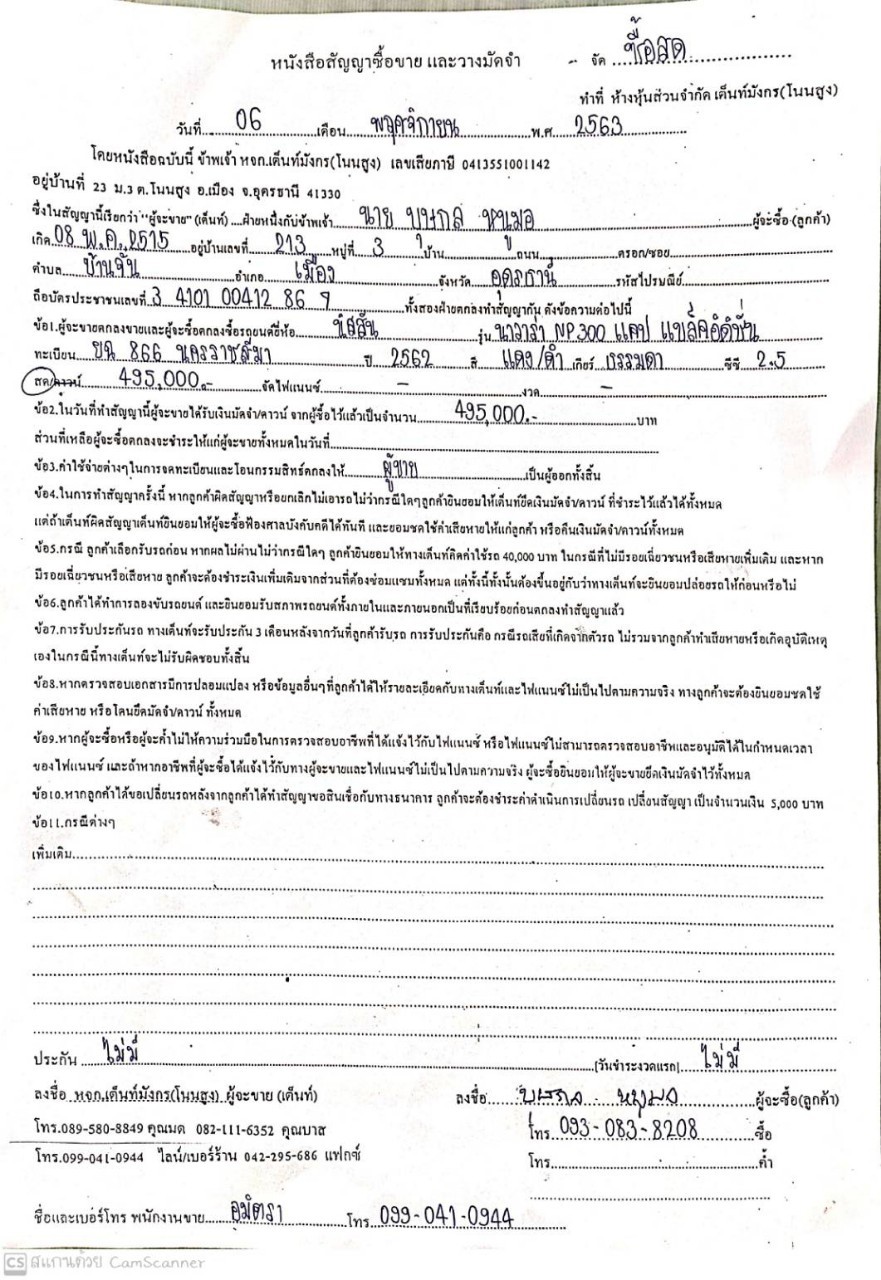 หนังสือสัญญาซื้อขาย และวางมัดจำ - จัด ซื้อสด
ทำที่ ห้างหุ้นส่วนจำกัด เต็นท์มังกร(โนนสูง)
วันที่ 06 เดือน พฤศจิกายน พ.ศ 2563
โดยหนังสือฉบับนี้ ข้าพเจ้า หจก.เต็นท์มังกร(โนนสูง) เลขเสียภาษี 0413551001142
อยู่บ้านที่ 23 ม.3 ต.โนนสูง อ.เมือง จ.อุดรธานี 41330
ซึ่งในสัญญานี้เรียกว่า "ผู้จะขาย" (เต็นท์) ....ฝ่ายหนึ่งกับข้าพเจ้า นาย ผู้จะซื้อ (ลูกค้า)
เกิด 08 พ.ค. 2515 อยู่บ้านเลขที่ 213 หมู่ที่ 3 บ้าน ถนน ตรอก/ซอย
ตำบล บ้านจั่น อำเภอ เมือง จังหวัด อุดรธานี รหัสไปรษณีย์
ถือบัตรประชาชนเลขที่ 3 4101 00412 86 7 ทั้งสองฝ่ายตกลงทำสัญญากัน ดังข้อความต่อไปนี้
ข้อ1.ผู้จะขายตกลงขายและผู้จะซื้อตกลงซื้อรถยนต์ยี่ห้อ นิสสัน รุ่น นาวารา NP300 แคป แบล็คอิดิชั่น
ทะเบียน 866 นครราชสีมา ปี 2562 สี แดง/ดำ เกียร์ ธรรมดา ซีซี 2.5
สด/ดาวน์ 495,000.- จัดไฟแนนซ์ - งวด -
ข้อ2.ในวันที่ทำสัญญานี้ผู้จะขายได้รับเงินมัดจำ/ดาวน์ จากผู้ซื้อไว้แล้วเป็นจำนวน 495,000.- บาท
ส่วนที่เหลือผู้จะซื้อตกลงจะชำระให้แก่ผู้จะขายทั้งหมดในวันที่
ข้อ3.ค่าใช้จ่ายต่างๆในการจดทะเบียนและโอนกรรมสิทธ์ตกลงให้ ผู้ขาย เป็นผู้ออกทั้งสิ้น
ข้อ4.ในการทำสัญญาครั้งนี้ หากลูกค้าผิดสัญญาหรือยกเลิกไม่เอารถไม่ว่ากรณีใดๆลูกค้ายินยอมให้เต็นท์ยึดเงินมัดจำ/ดาวน์ ที่ชำระไว้แล้วได้ทั้งหมด
แต่ถ้าเต็นท์ผิดสัญญาเต็นท์ยินยอมให้ผู้จะซื้อฟ้องศาลบังคับคดีได้ทันที และยอมชดใช้ค่าเสียหายให้แก่ลูกค้า หรือคืนเงินมัดจำ/ดาวน์ทั้งหมด
ข้อ5.กรณี ลูกค้าเลือกรับรถก่อน หากผลไม่ผ่านไม่ว่ากรณีใดๆ ลูกค้ายินยอมให้ทางเต็นท์คิดค่าใช้รถ 40,000 บาท ในกรณีที่ไม่มีรอยเฉี่ยวชนหรือเสียหายเพิ่มเติม และหาก
มีรอยเฉี่ยวชนหรือเสียหาย ลูกค้าจะต้องชำระเงินเพิ่มเติมจากส่วนที่ต้องซ่อมแซมทั้งหมด แต่ทั้งนี้ทั้งนั้นต้องขึ้นอยู่กับว่าทางเต็นท์จะยินยอมปล่อยรถให้ก่อนหรือไม่
ข้อ6.ลูกค้าได้ทำการลองขับรถยนต์ และยินยอมรับสภาพรถยนต์ทั้งภายในและภายนอกเป็นที่เรียบร้อยก่อนตกลงทำสัญญาแล้ว
ข้อ7.การรับประกันรถ ทางเต็นท์จะรับประกัน 3 เดือนหลังจากวันที่ลูกค้ารับรถ การรับประกันคือ กรณีรถเสียที่เกิดจากตัวรถ ไม่รวมจากลูกค้าทำเสียหายหรือเกิดอุบัติเหตุ
เองในกรณีนี้ทางเต็นท์จะไม่รับผิดชอบทั้งสิ้น
ข้อ8.หากตรวจสอบเอกสารมีการปลอมแปลง หรือข้อมูลอื่นๆที่ลูกค้าได้ให้รายละเอียดกับทางเต็นท์และไฟแนนซ์ไม่เป็นไปตามความจริง ทางลูกค้าจะต้องยินยอมชดใช้
ค่าเสียหาย หรือโดนยึดมัดจำ/ดาวน์ ทั้งหมด
ข้อ9.หากผู้จะซื้อหรือผู้จะค้ำไม่ให้ความร่วมมือในการตรวจสอบอาชีพที่ได้แจ้งไว้กับไฟแนนซ์ หรือไฟแนนซ์ไม่สามารถตรวจสอบอาชีพและอนุมัติได้ในกำหนดเวลา
ของไฟแนนซ์ และถ้าหากอาชีพที่ผู้จะซื้อได้แจ้งไว้กับทางผู้จะขายและไฟแนนซ์ไม่เป็นไปตามความจริง ผู้จะซื้อยินยอมให้ผู้จะขายยึดเงินมัดจำไว้ทั้งหมด
ข้อ10.หากลูกค้าได้ขอเปลี่ยนรถหลังจากลูกค้าได้ทำสัญญาขอสินเชื่อกับทางธนาคาร ลูกค้าจะต้องชำระค่าดำเนินการเปลี่ยนรถ เปลี่ยนสัญญา เป็นจำนวนเงิน 5,000 บาท
ข้อ11.กรณีต่างๆ
เพิ่มเติม
ประกัน ไม่มี [วันชำระงวดแรก] ไม่มี
ลงชื่อ หจก.เต็นท์มังกร(โนนสูง) ผู้จะขาย (เต็นท์) ลงชื่อ ผู้จะซื้อ(ลูกค้า)
โทร.089-580-8849 คุณมด 082-111-6352 คุณบาส โทร 093-083-8208 ซื้อ
โทร.099-041-0944 ไลน์/เบอร์ร้าน 042-295-686 แฟกซ์ โทร ค้ำ
ชื่อและเบอร์โทร พนักงานขาย โทร 099-041-0944
CS สแกนด้วย CamScanner